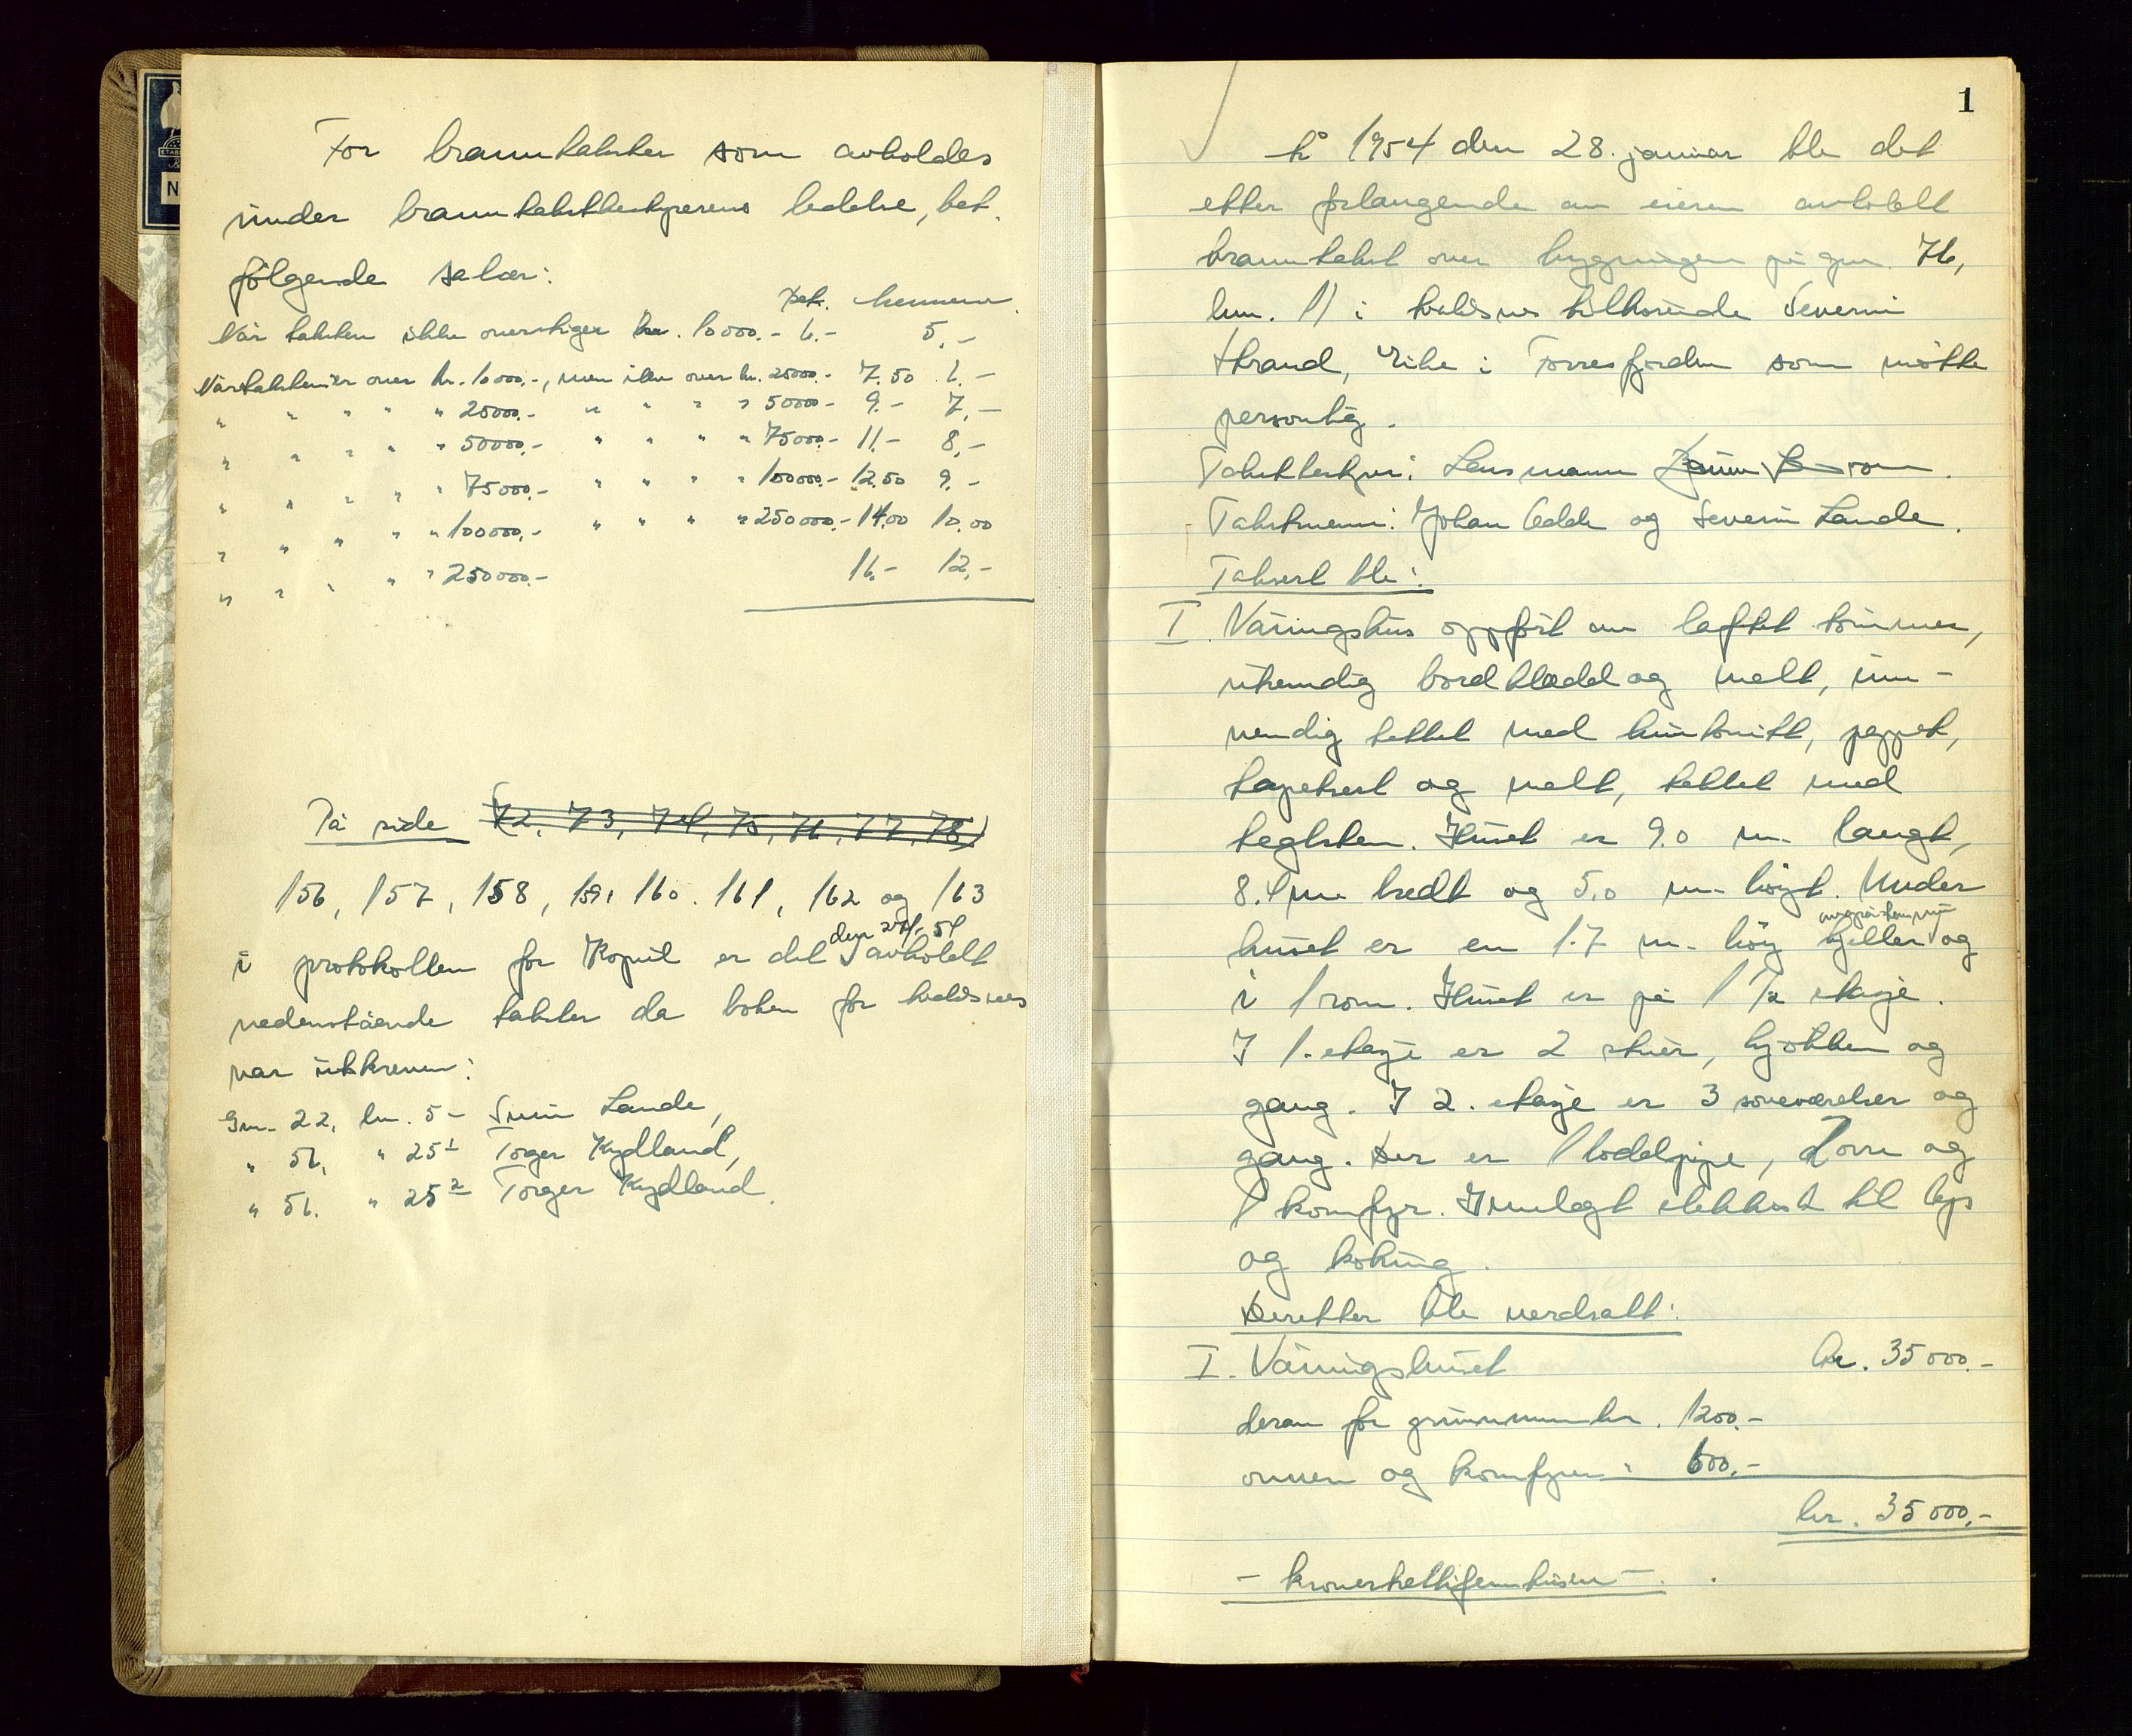 For branntakster som avholdes
under branntakstbestyrerens ledelse, bet.
følgende salær:
best. mennene
Når taksten ikke overstiger kr. 10000.- 6.- 5.-
Når taksten er over kr. 10000.-, men ikke over kr. 25000.- 7.50 6.-
" " " " " 25000.- " " " " 50000.- 9.- 7.-
" " " " " 50000.- " " " " 75000.- 11.- 8.-
" " " " " 75000.- " " " " 100000.- 12.50 9.-
" " " " " 100000.- " " " " 250000.- 14.00 10.00
" " " " " 250000.- 16.- 12.-
På side 72, 73, 74, 75, 76, 77, 78
156, 157, 158, 159, 160. 161, 162 og 163
den 24/4-54
i protokollen for Kopvik er det avholdt
nedenstående takster da boken for
var utskreven:
Gnr. 22, bnr. 5 - Lande,
" 56, " 25¹ Torger Kydland,
" 56. " 25² Torger Kydland.
1
År 1954 den 28. januar ble det
etter forlangende av eieren avholdt
branntakst over bygningen på gnr. 76,
bnr. 11 i tilhørende Severin
Strand, Eike i Førresfjorden som møtte
personlig.
Takstbestyrer: Lensmann
Takstmenn: Johan Odde og Severin Lande.
Taksert ble:
I. Våningshus oppført av laftet tømmer,
utvendig bordkledd og malt, inn-
vendig tettet med huntonitt, pappet,
tapetsert og malt, tekket med
teglsten. Huset er 9.0 m. langt,
8.4 m bredt og 5.0 m. høyt. Under
huset er en 1.7 m. høy kjeller og
i 1 rom. Huset er på 1 1/2 etasje.
I 1. etasje er 2 stuer, kjøkken og
gang. I 2. etasje er 3 soveværelser og
gang. Der er 1 loddpipe, 2 ovn og
1 komfyr. Innlagt elektrisk til lys
og koking.
Deretter ble verdsatt:
I. Våningshuset kr. 35000.-
derav for grunnmur kr. 1200.-
ovner og komfyrer " 600.-
kr. 35000.-
- kronertrettifemtusen -